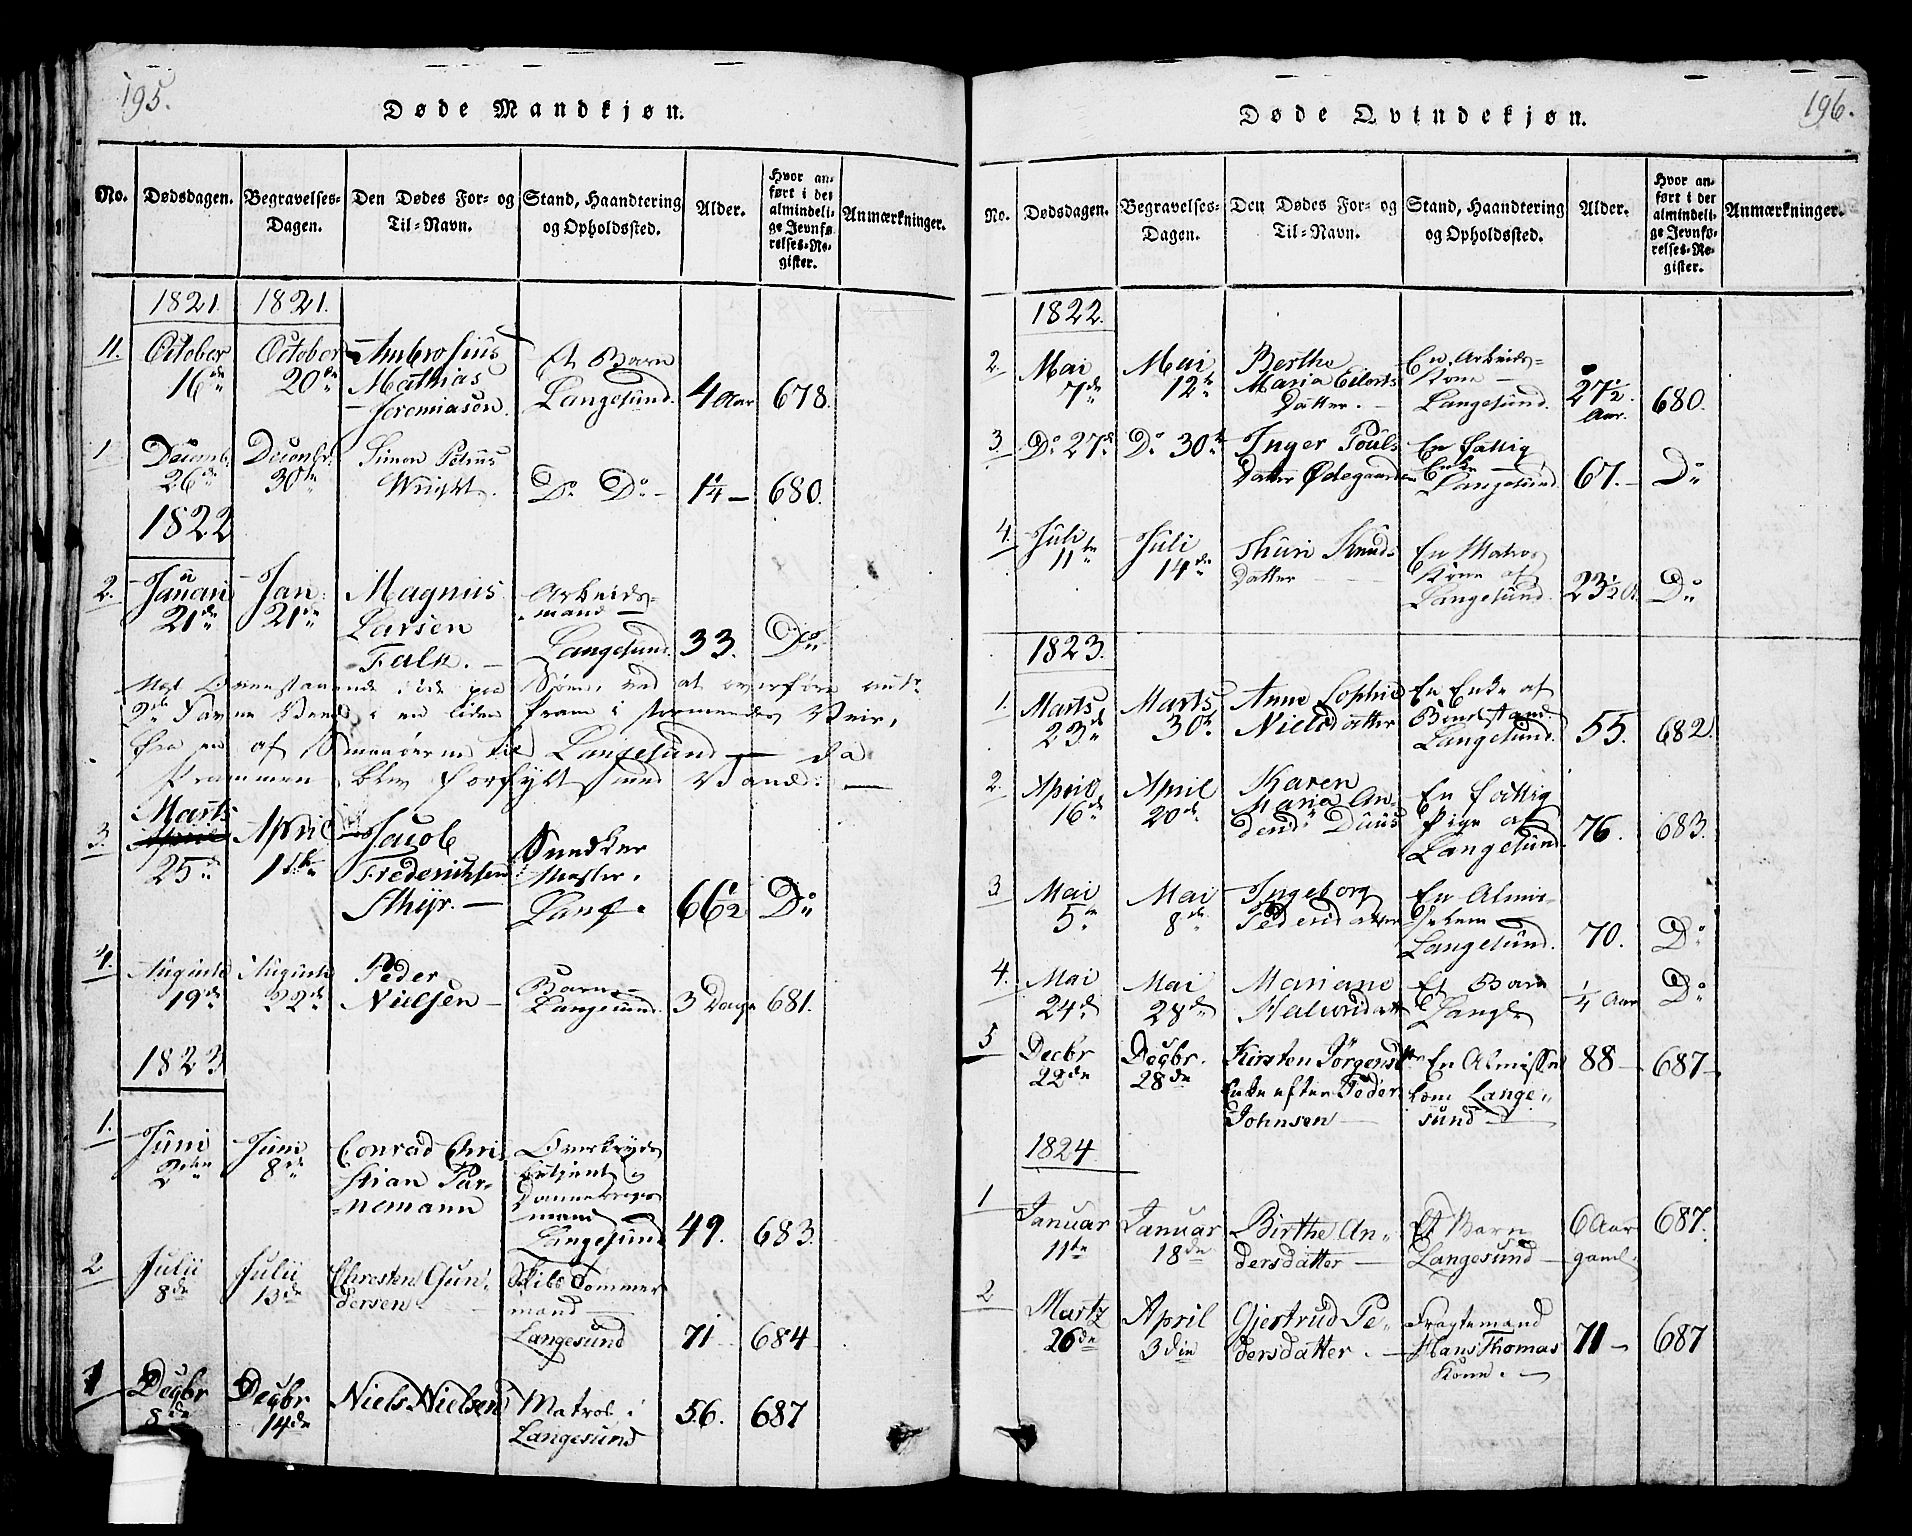 195.
Døde Mandkjøn.
No. Dødsdagen. Begravelses-Dagen. Den Dødes For- og Til-Navn. Stand, Haandtering og Opholdssted. Alder. Hvor anført i det almindelige Jevnførelses-Register. Anmærkninger.
1821. 1821.
11. October October Ambrosius Et Barn
16de 20de Mathias Langesund. 4 Aar 678.
Jeremiasen.
1 Decemb. Decembr. Simon Petrus
26de 30te Wright. Do Do 1¼ 680.
1822
2. Januari Jan: Magnus Arbeids-
21de 21de Larsen mand
Falk. Langesund. 33. Do
en liden Pram i stormende Veir,
fra en af til Langesund da
Prammen blev forfyldt med Vand.
3. Marts April Jacob
25de 1ste Frederichsen Mester.
Sthyr. Lang 66½ Do
4. Auguste Auguste Peder Barn
19de 22de Nielsen Langesund. 3 Dage 681.
1823
1. Juni Juni Conrad Chri
2den 8de stian Par-
nemann mand
Langesund 49. 683.
2 Julii Julii Chresten Gun- Skibs Tømmer
8de 13de dersen mand
Langesund 71 684
1 Decbr Decbr Niels Nielsen Matros i 56. 687
8de 14de Langesund
196.
Døde Qvindekjøn.
No. Dødsdagen. Begravelses-Dagen. Den Dødes For- og Til-Navn. Stand, Haandtering og Opholdssted. Alder. Hvor anført i det almindelige Jevnførelses-Register. Anmærkninger.
1822.
2. Mai Mai Berthe En Arbeids-
7de 12te Maria Eilerts Kone 27½ 680.
Datter. Langesund. Aar.
3. Do 27de Do 30te Inger Pouls En fattig
Datter Ødegaarden Enke
Langesund 67. Do
4. Juli Juli Thuri Knuds En Matros
11te 14de Datter Kone af
Langesund. 23½ A. Do
1823.
1. Marts Marts Anne Sophie En Enke af
23de 30te Nielsdatter Bondestand.
Langesund. 55. 682.
2. April April Karen En fattig
16de 20de Maria An- Pige af
Duus Langesund. 76. 683.
3 Mai Mai Ingeborg En Almis-
5te 8de Pedersdatter
Langesund. 70. Do
4. Mai Mai Mariane Et Barn
24de 28de ¼ Aar Do
5 Decbr Decbr. Kirsten Jörgensd En Almisse 88 687
22de 28de Enke efter Peder lem Lange-
Johnsen sund
1824
1 Januar Januar Birthe An- Et Barn 6 Aar 687.
11te 18de dersdatter Langesund gaml.
2 Martz April Gjertrud Pe- Fragtemand
26de 3die dersdatter. Hans Thomas 71 687
Kone.